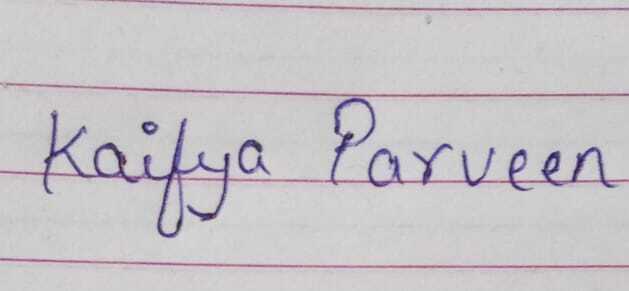 Kaifya Parveen